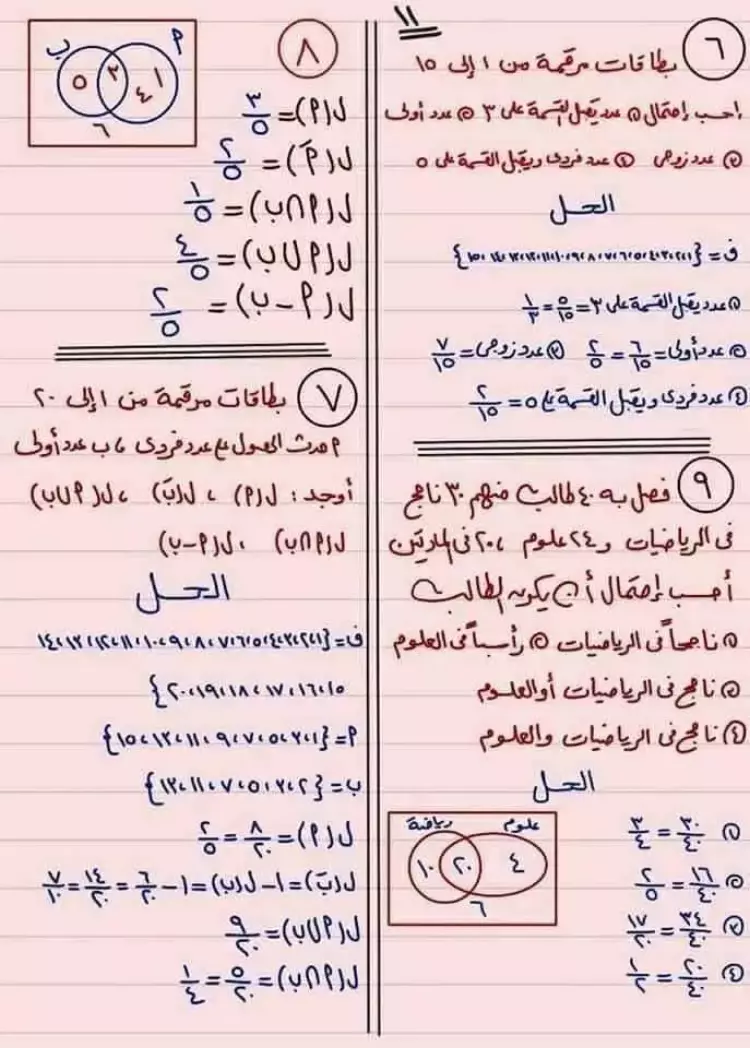 ١١
٦
بطاقات مرقمة من ١ إلى ١٥
إحسب إحتمال ① عدد يقبل القسمة على ٣ ② عدد أولى
③ عدد زوجى ④ عدد فردى ويقبل القسمة على ٥
الحل
ف = {١،٢،٣،٤،٥،٦،٧،٨،٩،١٠،١١،١٢،١٣،١٤،١٥}
① عدد يقبل القسمة على ٣ = ٥/١٥ = ١/٣
② عدد أولى = ٦/١٥ = ٢/٥ ③ عدد زوجى = ٧/١٥
④ عدد فردى ويقبل القسمة على ٥ = ٢/١٥
٩
فصل به ٤٠ طالب منهم ٣٠ ناجح
فى الرياضيات و ٢٤ علوم ، ٢٠ فى المادتين
أحسب إحتمال أن يكون الطالب
① ناجحاً فى الرياضيات ② رأسباً فى العلوم
③ ناجح فى الرياضيات أو العلوم
④ ناجح فى الرياضيات والعلوم
الحل
رياضة علوم
١٠ ٢٠ ٤
٦
① ٣٠/٤٠ = ٣/٤
② ١٦/٤٠ = ٢/٥
③ ٣٤/٤٠ = ١٧/٢٠
④ ٢٠/٤٠ = ١/٢
٨
ب م
٥ ٣ ٤ ١
٦
ل(م) = ٣/٥
ل(مَ) = ٢/٥
ل(م∩ب) = ١/٥
ل(م∪ب) = ٤/٥
ل(م-ب) = ٢/٥
٧
بطاقات مرقمة من ١ إلى ٢٠
م حدث الحصول على عدد فردى ، ب عدد أولى
أوجد : ل(م) ، ل(بَ) ، ل(م∪ب)
ل(م∩ب) ، ل(م-ب)
الحل
ف = {١،٢،٣،٤،٥،٦،٧،٨،٩،١٠،١١،١٢،١٣،١٤
١٥،١٦،١٧،١٨،١٩،٢٠}
م = {١،٣،٥،٧،٩،١١،١٣،١٥}
ب = {٢،٣،٥،٧،١١،١٣}
ل(م) = ٨/٢٠ = ٢/٥
ل(بَ) = ١ - ل(ب) = ١ - ٦/٢٠ = ١٤/٢٠ = ٧/١٠
ل(م∪ب) = ٩/٢٠
ل(م∩ب) = ٥/٢٠ = ١/٤